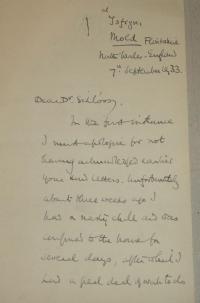 at
Mold, Flintshire
North Wales, England
7th September 1933.
Dear Dr
In the first instance
I must apologise for not
having acknowledged earlier
your kind letters. Unfortunately
about three weeks ago I
had a nasty chill and was
confined to the house for
several days, after which I
had a good deal of work to do